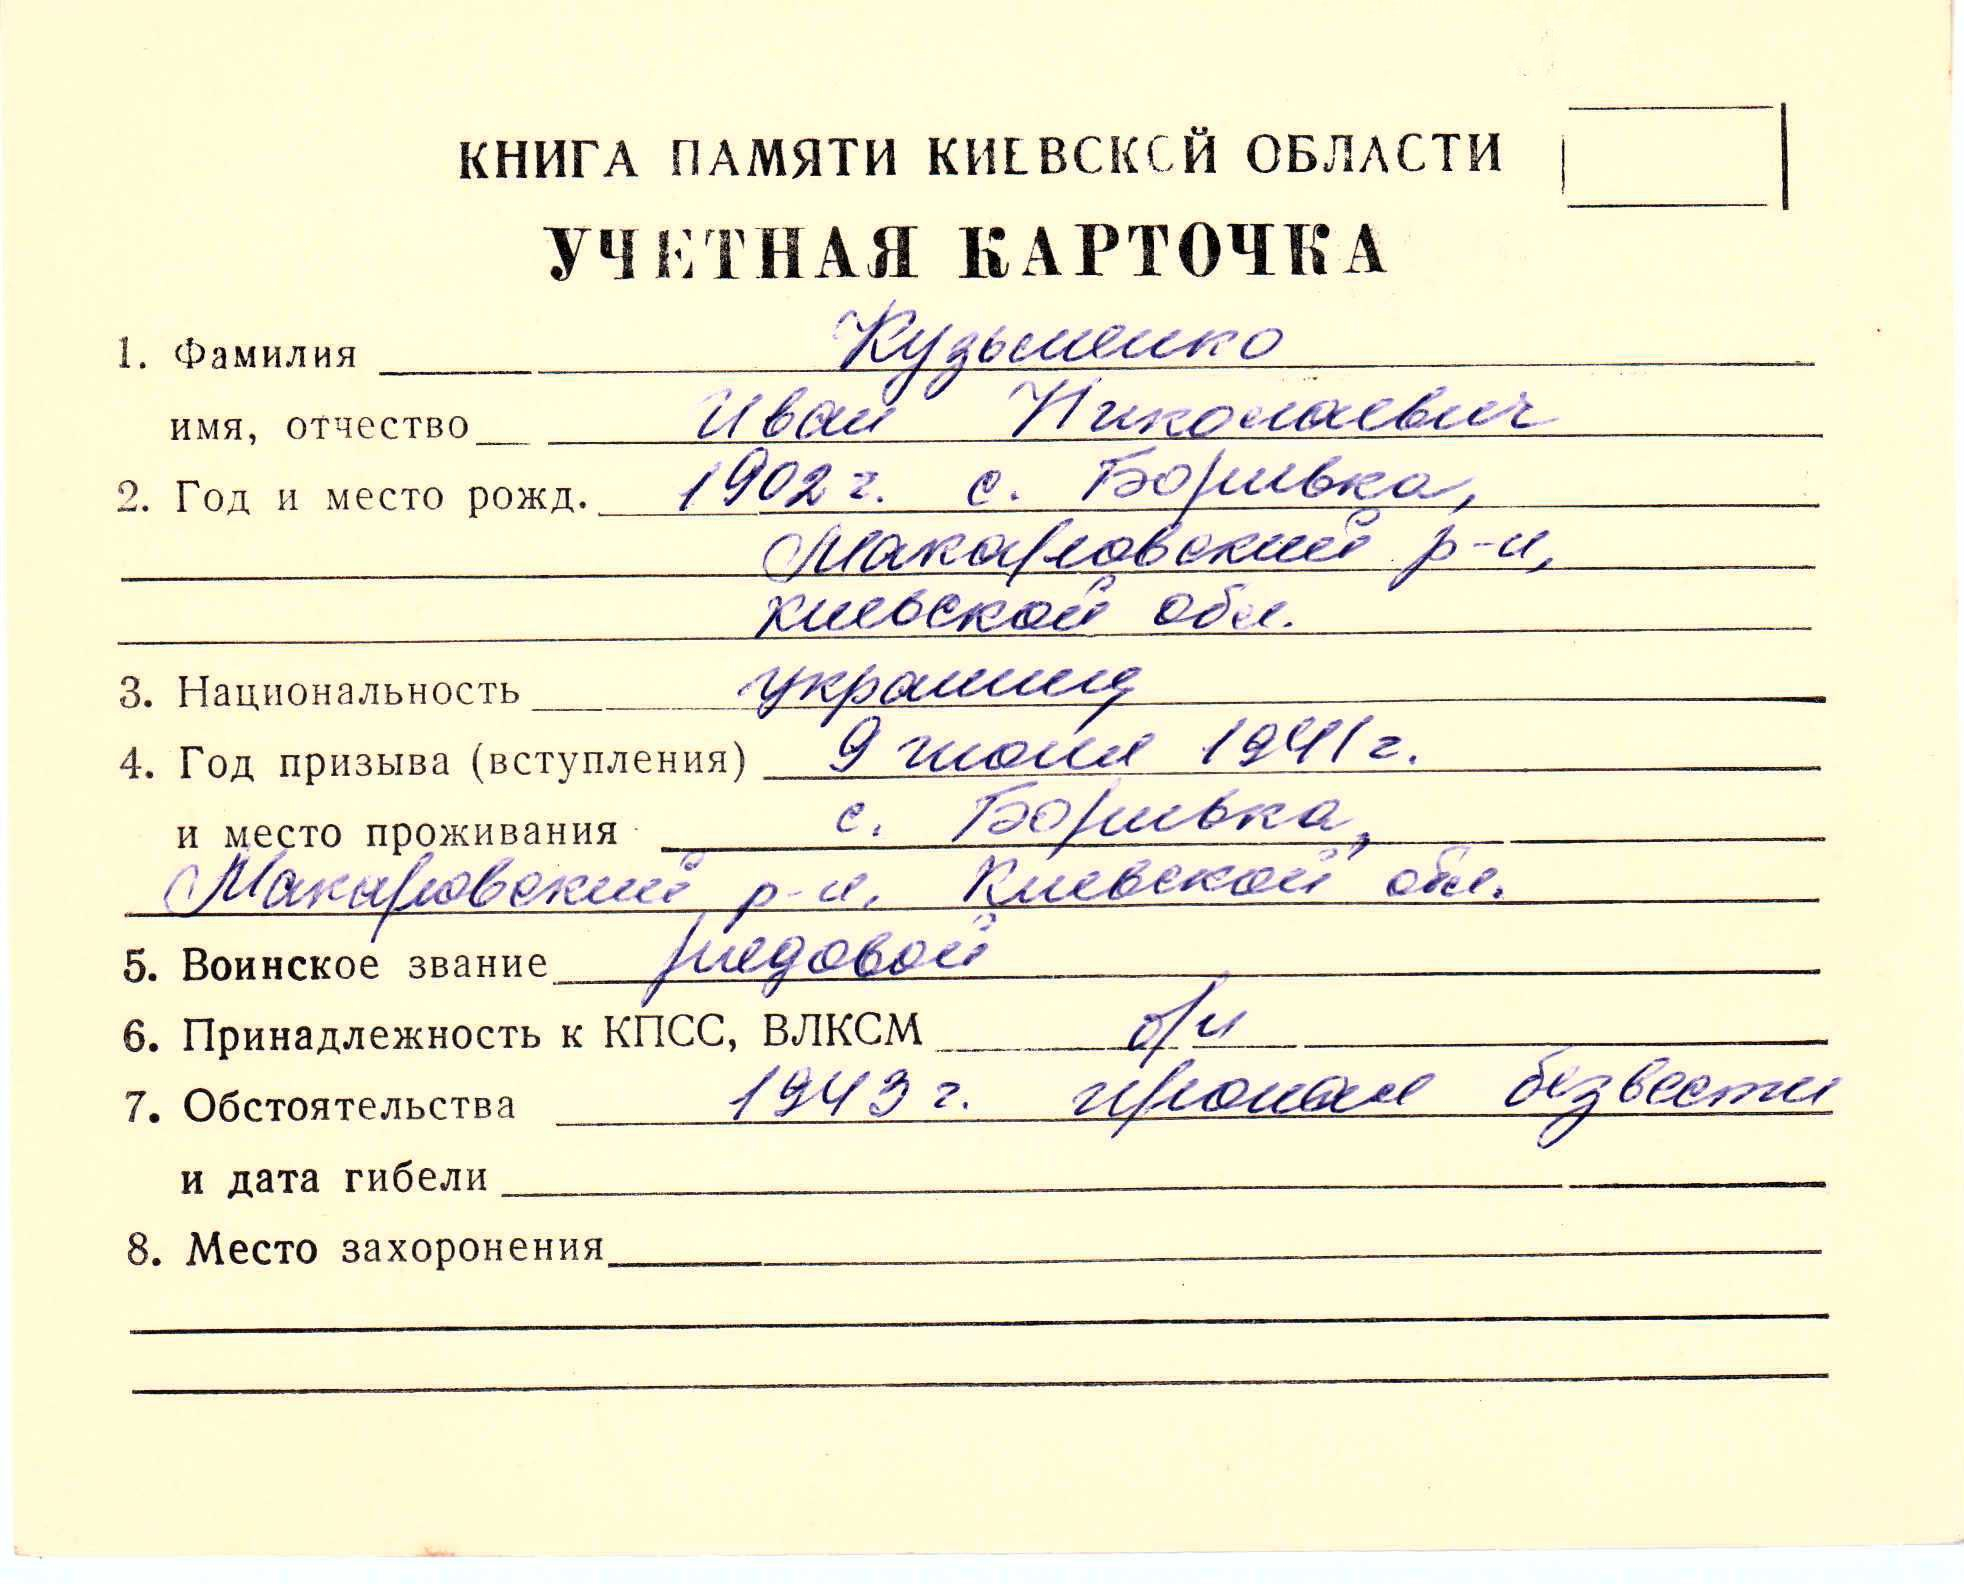 КНИГА ПАМЯТИ КИЕВСКОЙ ОБЛАСТИ
УЧЕТНАЯ КАРТОЧКА
1. Фамилия Кузьменко
имя, отчество Иван Николаевич
2. Год и место рожд. 1902 г. с. Боривка,
Макаровский р-н,
Киевской обл.
3. Национальность украинец
4. Год призыва (вступления) 9 июля 1941 г.
и место проживания с. Боривка,
Макаровский р-н, Киевской обл.
5. Воинское звание рядовой
6. Принадлежность к КПСС, ВЛКСМ б/п
7. Обстоятельства 1943 г. пропал безвести
и дата гибели
8. Место захоронения